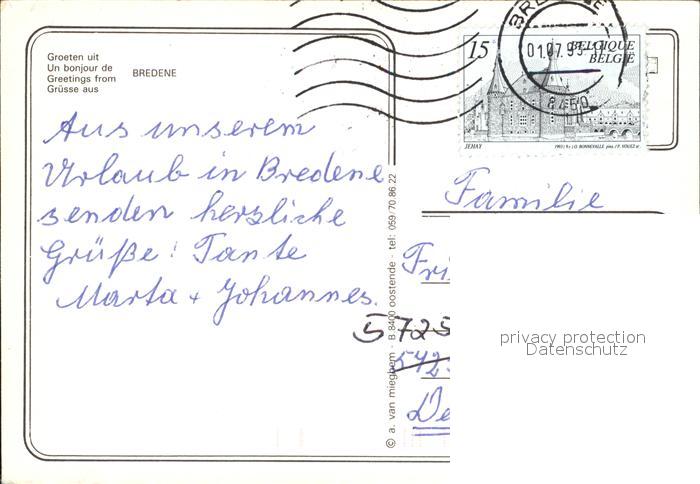 Groeten uit
Un bonjour de
Greetings from
Grüsse aus
BREDENE
Aus unserem
Urlaub in Bredene
senden herzliche
Grüße! Tante
Marta + Johannes.
© a. van mieghem - B 8400 oostende - tel: 059/70.86.22
15
BELGIQUE
BELGIË
JEHAY
BREDENE
01.07.93
8450
Familie
Fri
5725
542
De
privacy protection
Datenschutz